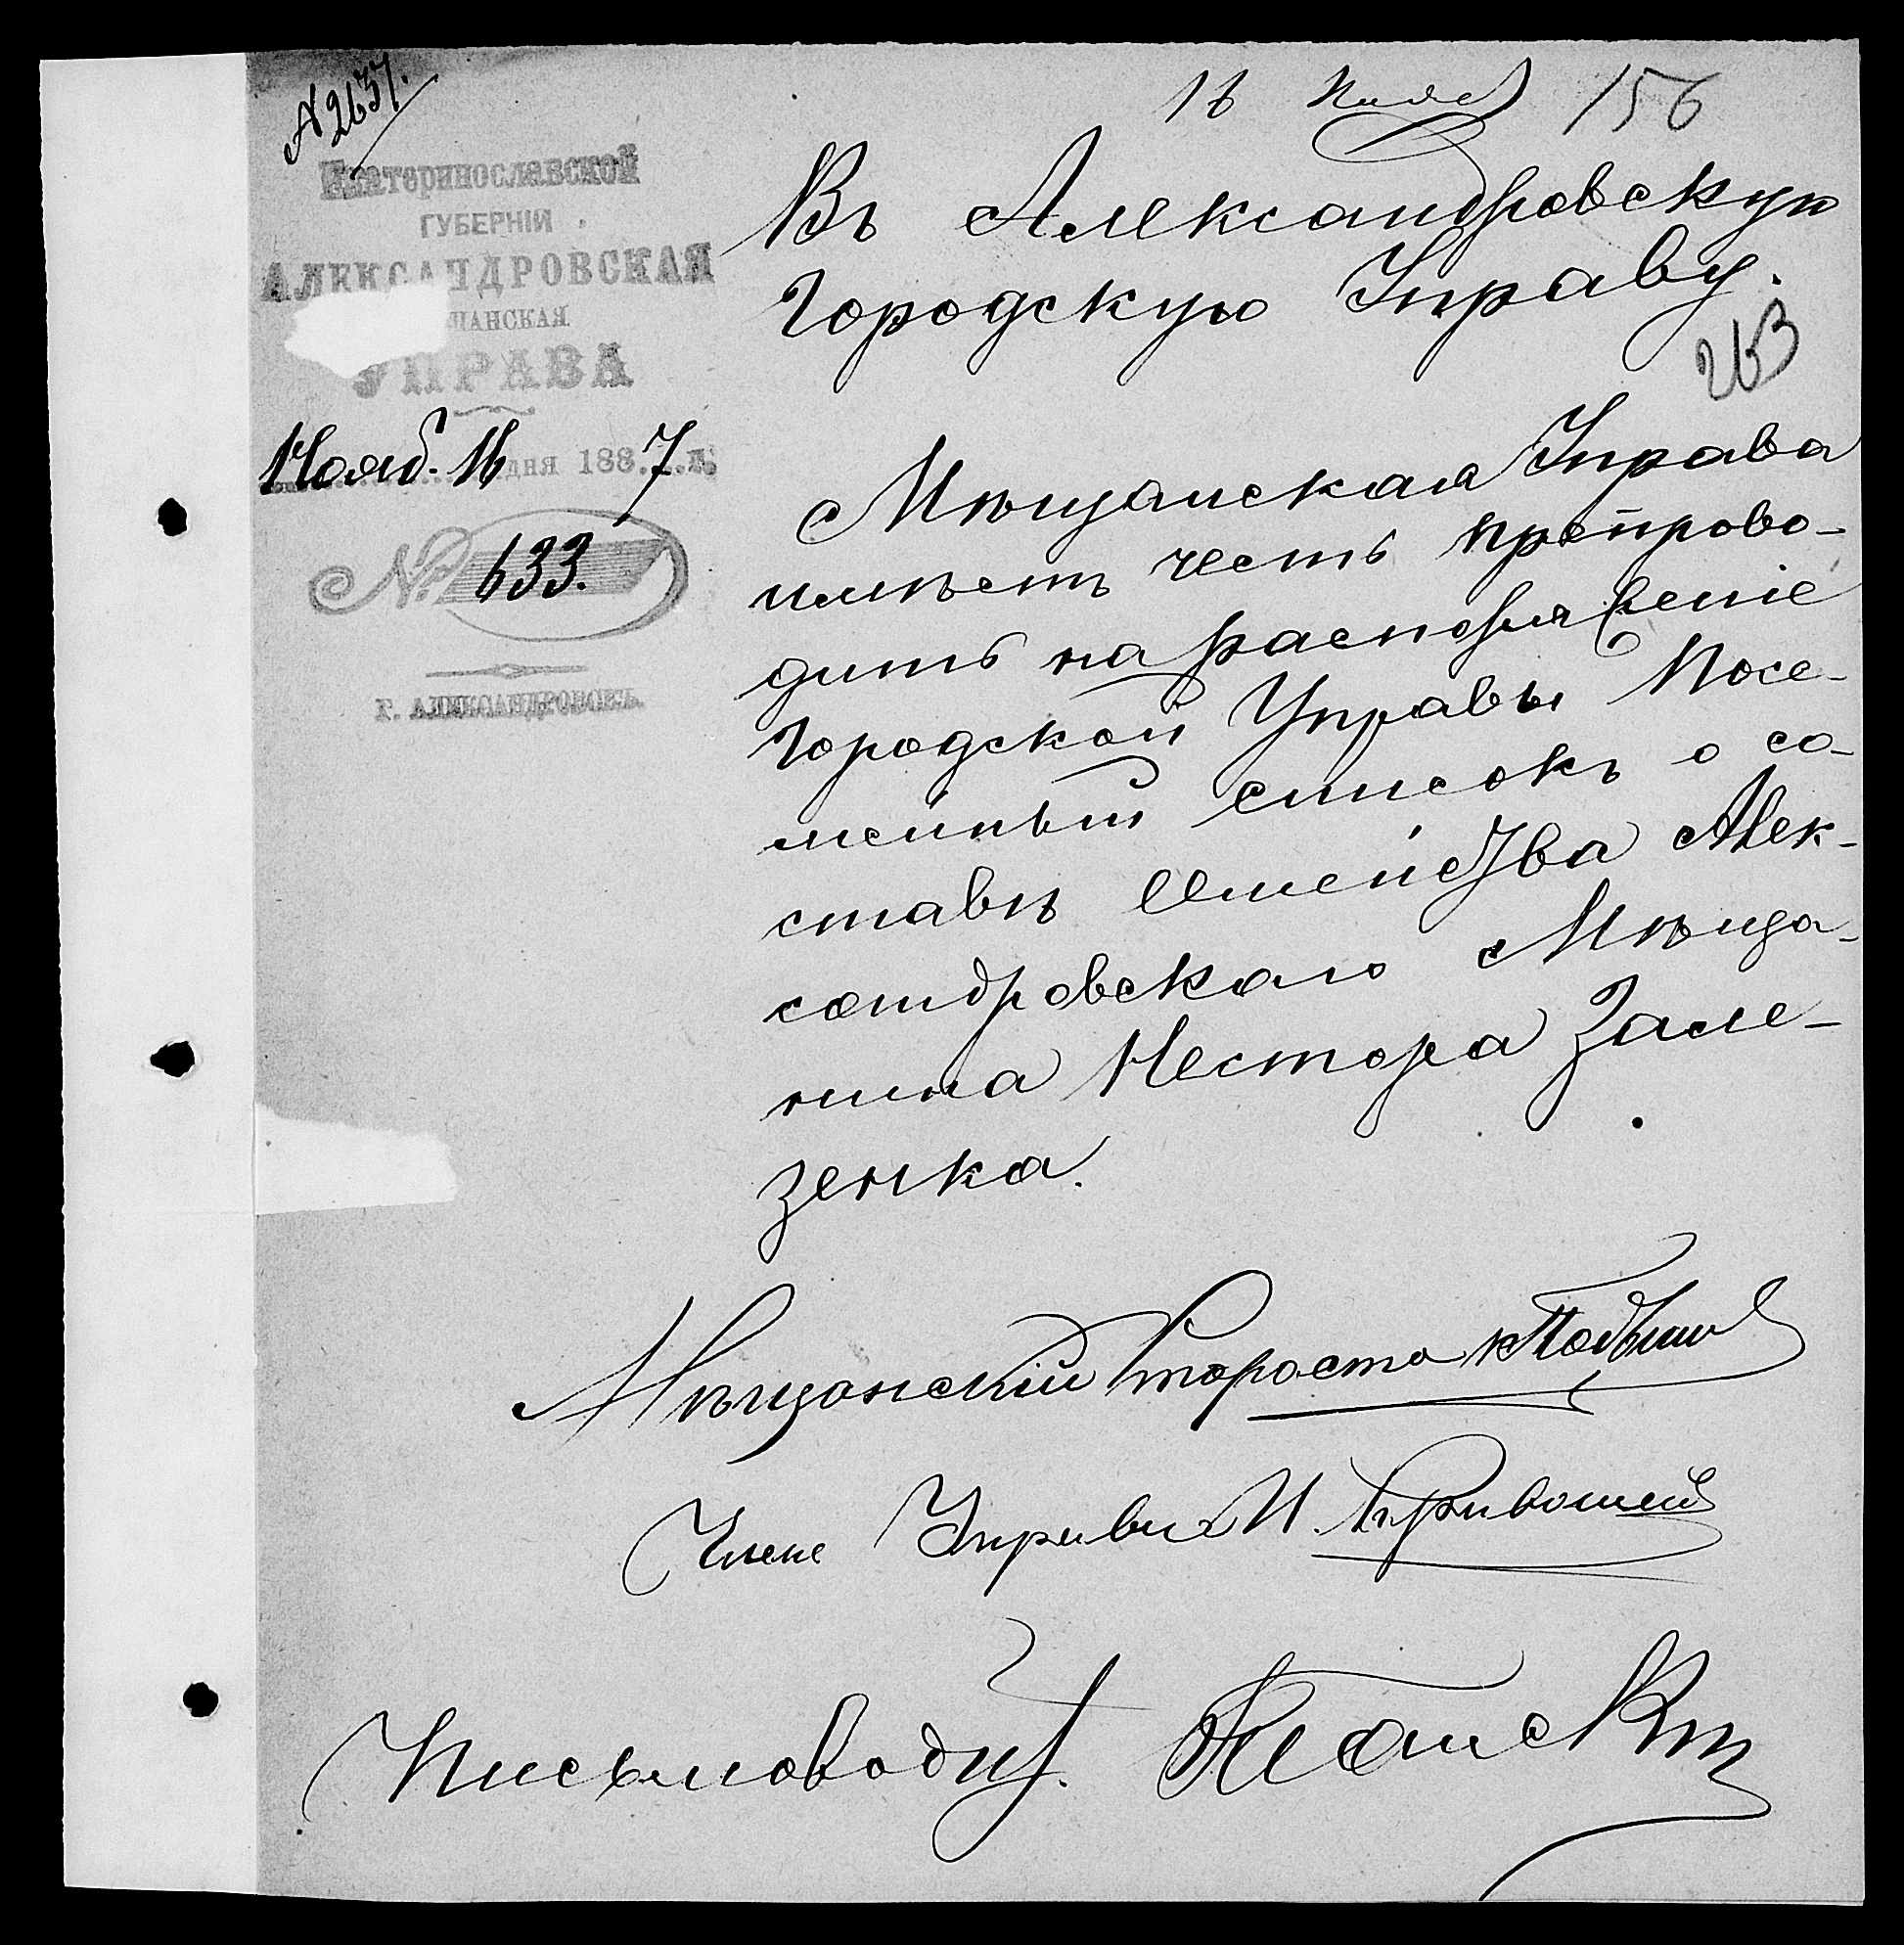 № 2637.
16 Нояб 156
Екатеринославской
ГУБЕРНІИ
АЛЕКСАНДРОВСКАЯ
ЩАНСКАЯ
УПРАВА
Нояб. 16 дня 1887 г.
№ 633.
г. АЛЕКСАНДРОВСКЪ.
Въ Александровскую
Городскую Управу.
263
Мѣщанская Управа
имѣетъ честь препрово-
дить на распоряженіе
Городской Управы Посе-
мейный списокъ о со-
ставѣ Семейства Алек-
сандровскаго Мѣща-
нина Нестора Зале-
зенка.
Мѣщанскій Староста
Членъ Управы И. Кривошей
Письмоводит.